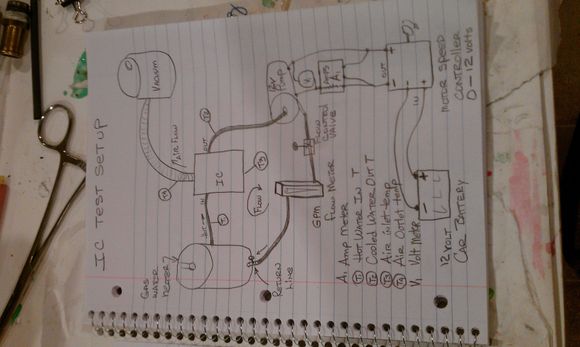 IC TEST SETUP
VACUUM
AIR FLOW
T4
OUT
T2
IC
T3
IN
T1
FLOW
GAS
WATER
HEATER
RETURN
LINE
12V
PUMP
FLOW
CONTROL
VALVE
GPM
FLOW METER
V
AMPS
A
OUT
IN
MOTOR SPEED
CONTROLLER
0-12 VOLTS
12 VOLT
CAR BATTERY
A, AMP METER
T1 HOT WATER IN T
T2 COOLED WATER OUT T
T3 AIR INLET TEMP
T4 AIR OUTLET TEMP
V, VOLT METER